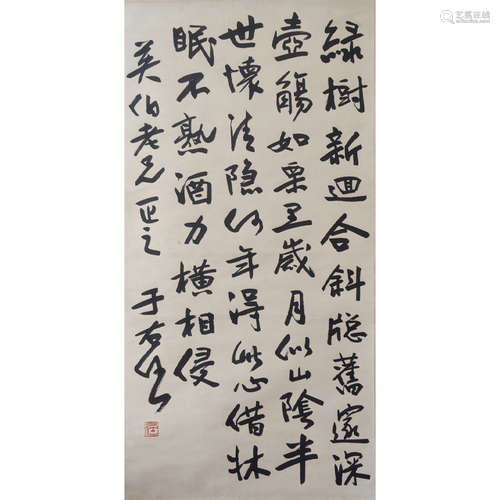 綠樹新迴合斜牕舊邃深
壺觴如栗里歲月似山陰半
世懷清隱何年得此心借牀
眠不熟酒力橫相侵
英伯老兄正之 于右任